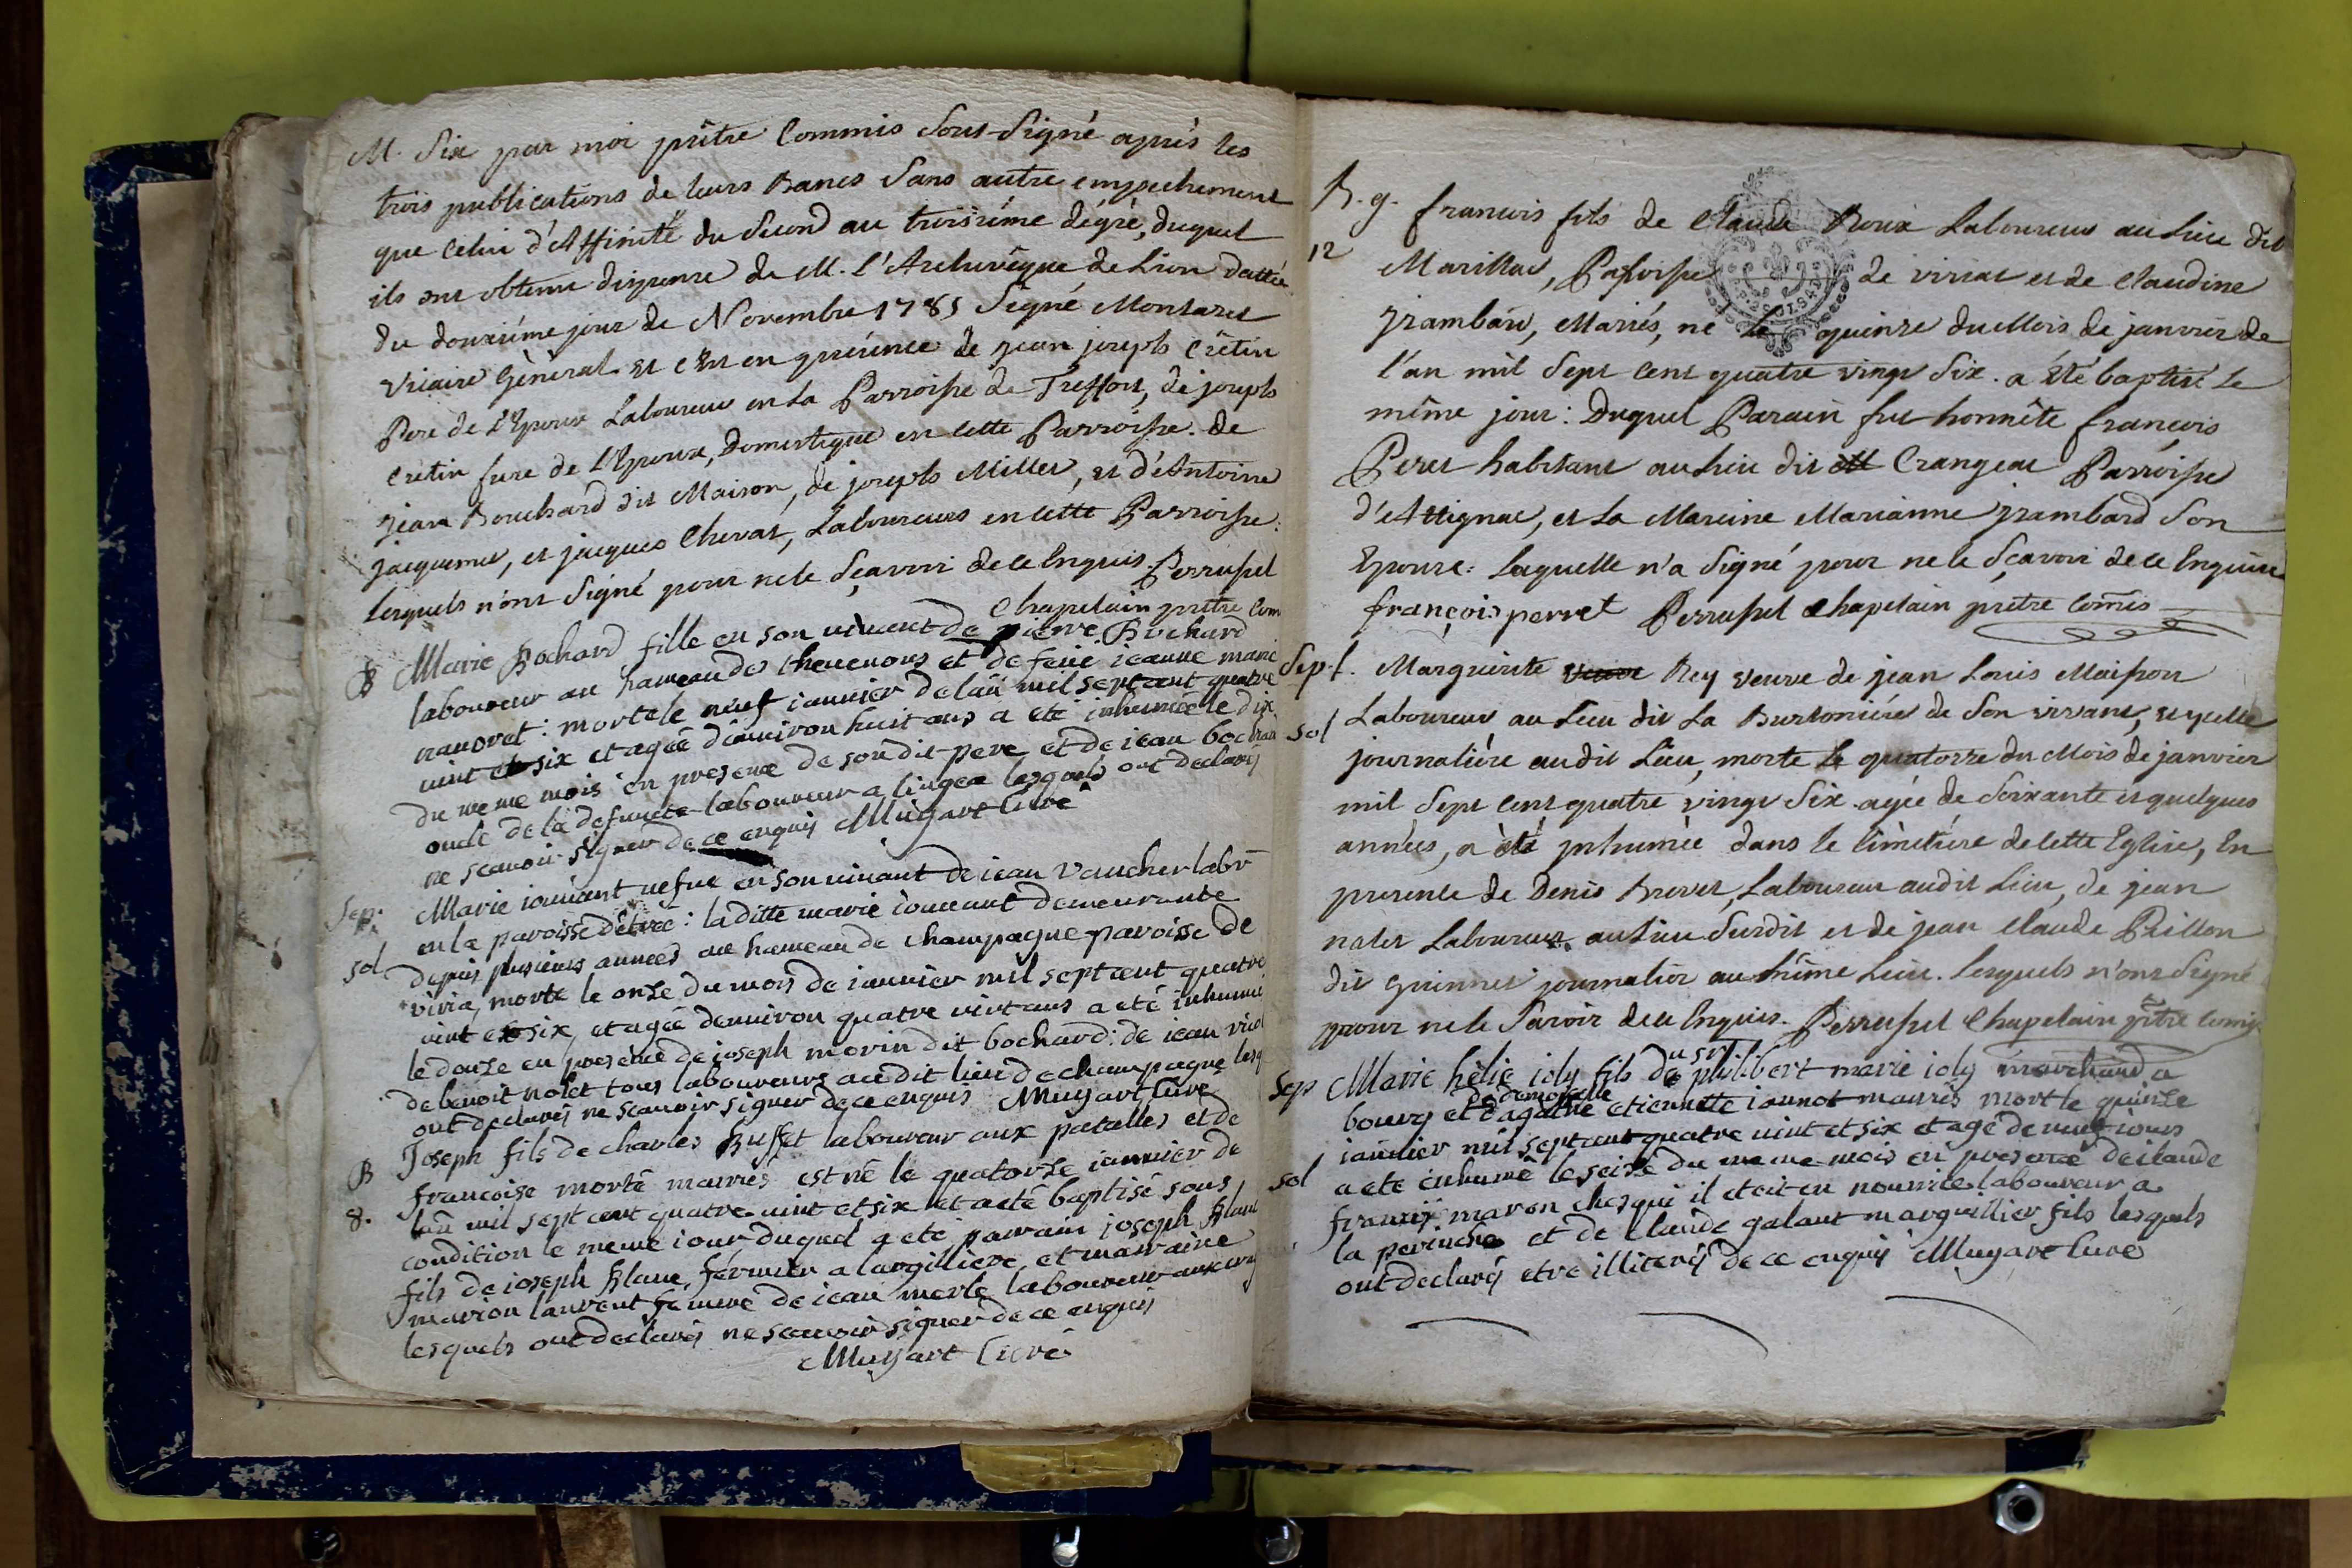 M. Six par moi prêtre Commis Sous-Signé après les
trois publications de leurs Bancs Sans autre empechement
que celui d'Affinité du Second au troisième dégré, duquel
ils ont obtenu dispense de M. l'Archevêque de Lion dattée
du douxième jour de Novembre 1785 Signé Montazet
Vicaire Général et c'est en présence de jean joseph Crêtin
Pere de l'Epoux Laboureur en la Parroisse de Treffort, de joseph
Cretin frere de l'Epoux, Domestique en cette Parroisse. de
jean Bouchard dit Maison, de joseph Millet, et d'Antoine
jacquemet, et jacques Chevat, Laboureurs en cette Parroisse:
lesquels n'ont Signé pour ne le Sçavoir de ce Enquis Perrussel
Chapelain prêtre Com
B Marie Bochard fille en son vivant de pierre Bochard
laboureur au hameau des et de feüe ieanne marie
: morte le neuf ianvier de lan mil sept cent quatre
vint et six et agée d'environ huit ans a eté inhumée le dix
du meme mois en presence de son dit pere et de iean bochard
oncle de la defuncte laboureur a lingea lesquels ont declarés
ne scavoir signer de ce enquis Muyart Curé
Sep. Marie en son vivant de iean Vaucher labr
en la paroisse d'êtrée: laditte marie demeurante
sol depuis plusieurs années au hameau de champagne paroisse de
viria, morte le onze du mois de ianvier mil sept cent quatre
vint et six, et agée d'environ quatre vint ans a eté inhumée
le douze en presence de ioseph morin dit bochard: de iean
de benoit nolet tous laboureurs au dit lieu de champagne lesq
ont declarés ne scavoir signer de ce enquis Muyart Curé
B Ioseph fils de charles Buffet laboureur aux patalles et de
francoise morte mariés est né le quatorze ianvier de
8. lan mil sept cent quatre vint et six et a eté baptisé sous
condition le meme iour duquel a eté parrain ioseph Blanc
fils de ioseph Blanc, fermier a largilliere, et marraine
marion laurent femme de iean merle laboureur aux
lesquels ont declarés ne scavoir signer de ce enquis
Muyart Curé
B. g. francois fils de Claude Roux Laboureur au Lieu dit
12 Marillac, Paroisse de viriat et de Claudine
jrambard, Mariés, né le quinze du Mois de janvier de
l'an mil Sept cent quatre vingt Six. a été baptisé le
même jour: Duquel Parain fut honnête françois
Peret habitant au Lieu dit Crangeat Parroisse
d'Attignat, et la Mareine Marianne jrambard Son
Epouse: laquelle n'a Signé pour ne le Sçavoir de ce Enquise
françois perret Perrussel Chapelain prêtre Comis
Sep.f. Marguerite Veuve Rey veuve de jean Louis Maisson
sol Laboureur au Lieu dit La Burtonière de Son vivant, et elle
journalière audit Lieu, morte le quatorze du Mois de janvier
mil Sept cent quatre vingt Six. agée de Soixante et quelques
années, a été jnhumée dans le Cimetière de cette Eglise, En
presence de Denis Brevet, Laboureur audit Lieu, de jean
nalet Laboureur au Lieu Susdit et de jean Claude Pillon
dit journalier au même Lieu. lesquels n'ont Signé
pour ne le Savoir de ce Enquis. Perrussel Chapelain ptre Comis
Sep Marie hélie ioly fils du sr philibert marie ioly marchand a
bourg et de demoiselle agathe etiennette iannot mariés mort le quinze
ianvier mil sept cent quatre vint et six et agé de neuf iours
sol a eté inhumé le seize du meme mois en presence de claude
francois maron ches qui il etoit en nourrice laboureur a
la perinche et de claude galant marguillier fils lesquels
ont declarés etre illiterés de ce enquis Muyart Curé